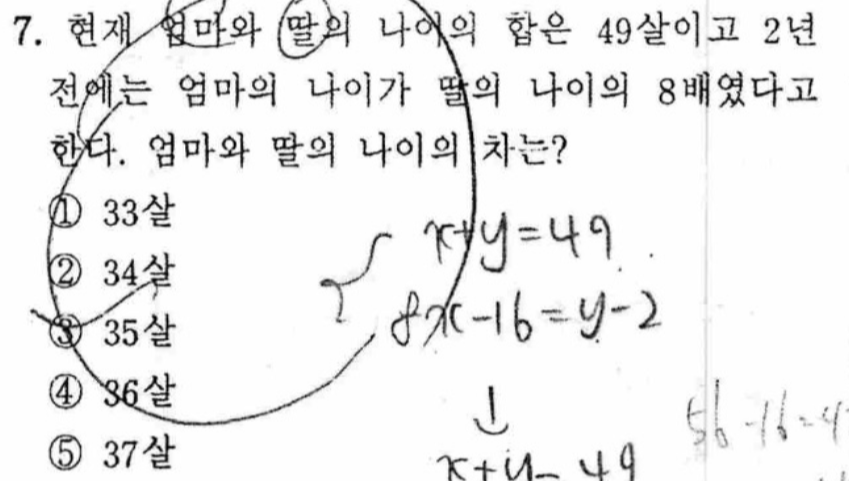 7. 현재 엄마와 딸의 나이의 합은 49살이고 2년
전에는 엄마의 나이가 딸의 나이의 8배였다고
한다. 엄마와 딸의 나이의 차는?
① 33살
② 34살
③ 35살
④ 36살
⑤ 37살
x+y=49
8x-16=y-2
↓
x+y=49
56-16=4